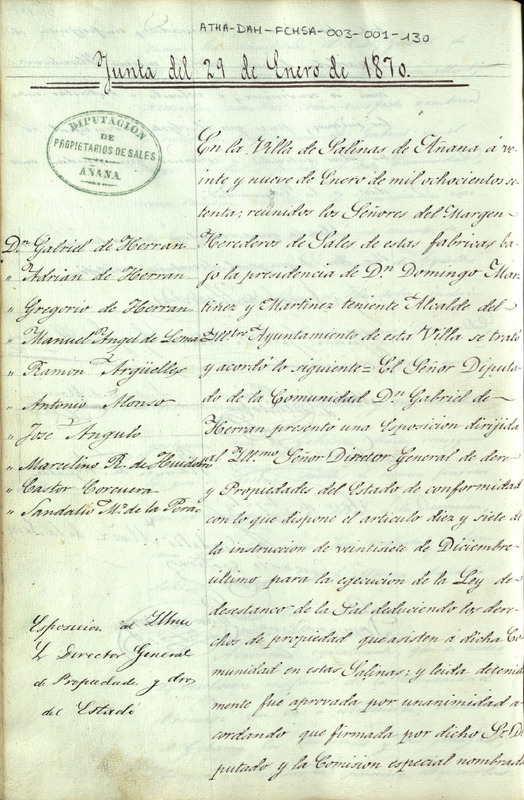 ATHA-DAH-FCHSA-003-001-130
Junta del 29 de Enero de 1870.
DIPUTACION
DE
PROPIETARIOS DE SALES
AÑANA
Dn Gabriel de Herran
" Adrian de Herran
" Gregorio de Herran
" Manuel Angel de Loma
" Ramon Argüelles
" Antonio Alonso
" José Angulo
" Marcelino R. de Huidobro
" Castor Corcuera
" Sandalio Ma. de la Pera
Esposicion al Iltmo
Sr Director General
de Propiedades y dros
del Estado
En la Villa de Salinas de Añana, á ve-
inte y nueve de Enero de mil ochocientos se-
tenta; reunidos los Señores del Margen
Herederos de Sales de estas fabricas ba-
jo la presidencia de Dn Domingo Mar-
tinez y Martinez teniente Alcalde del
Illtre Ayuntamiento de esta Villa se trató
y acordó lo siguiente = El Señor Diputa-
do de la Comunidad Dn Gabriel de
Herran presento una Esposicion dirijida
al Yll.mo Señor Director General de dere-
y Propiedades del Estado de conformidad
con lo que dispone el articulo diez y siete de
la instruccion de veintisiete de Diciembre
último para la egecucion de la Ley de
desestanco de la Sal deduciendo los dere-
chos de propiedad que asisten á dicha Co-
munidad en estas Salinas; y leida detenida
mente fué aprovada por unanimidad a-
cordando que firmada por dicho Sr Di-
putado y la Comision especial nombrada